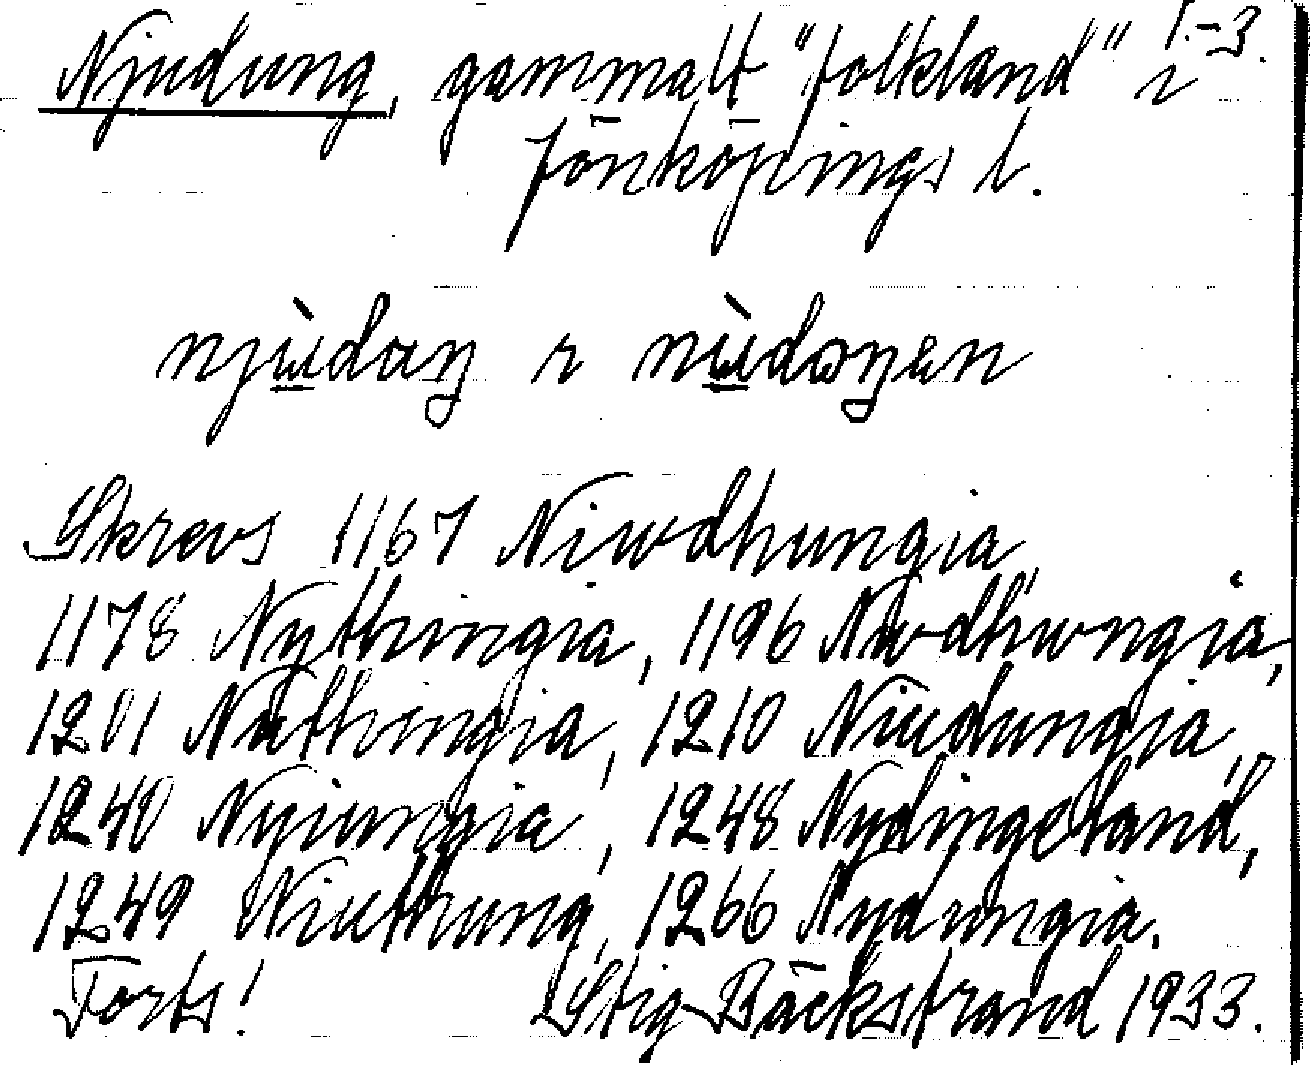 1.-3.
Njudung, gammalt "folkland" i
Jönköpings l.
njùdaŋ r nùdaŋen
Skrevs 1167 Niwdhungia,
1178 Nythingia, 1196 Niwdhwngia,
1201 Nuthingia, 1210 Niudungia,
1240 Nyiungia, 1248 Nydingeland,
1249 Niuthung, 1266 Nydungia.
Forts! Stig Bäckstrand 1933.